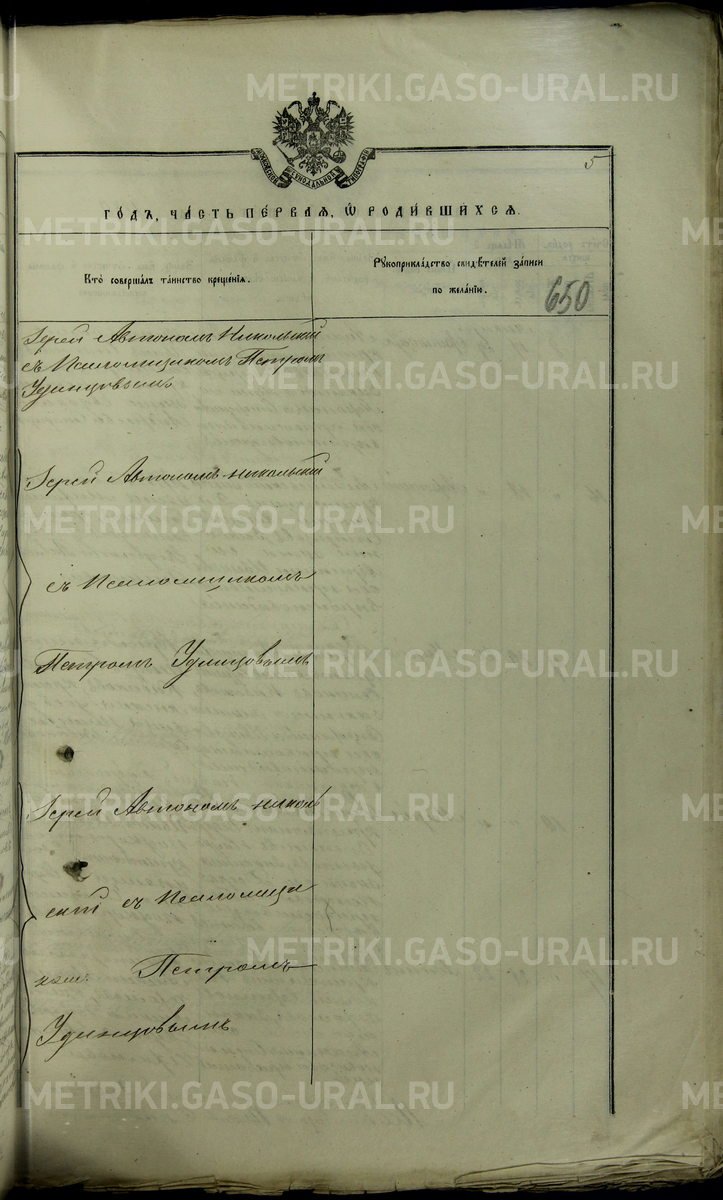 5
МОСКОВСКОЙ СѴНОДАЛЬНОЙ ТИПОГРАФІИ
ГО́ДЪ, ЧА́СТЬ ПЕ́РВАЯ, Ѡ҆ РОДИ́ВШИХСЯ.
Кто̀ соверша́лъ та́инство креще́нїя.
Рꙋкоприкла́дство свидѣ́телей за́писи
по жела́нїю.
650
Іерей Автономъ Никольскій
съ Псаломщикомъ Петромъ
Удинцовымъ
Іерей Автономъ Никольскій
съ Псаломщикомъ
Петромъ Удинцовымъ
Іерей Автономъ Николь
скій съ Псаломщи
комъ Петромъ
Удинцовымъ
METRIKI.GASO-URAL.RU
METRIKI.GASO-URAL.RU
METRIKI.GASO-URAL.RU
METRIKI.GASO-URAL.RU
METRIKI.GASO-URAL.RU
METRIKI.GASO-URAL.RU
METRIKI.GASO-URAL.RU
METRIKI.GASO-URAL.RU